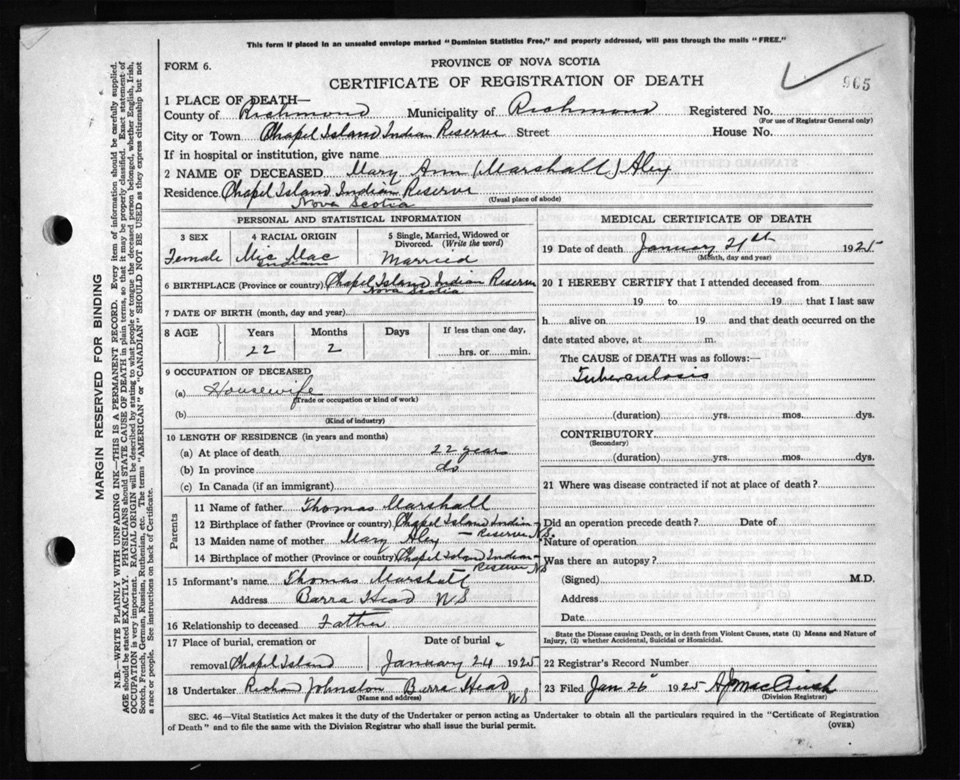 This form if placed in an unsealed envelope marked "Dominion Statistics Free," and properly addressed, will pass through the mails "FREE."
FORM 6.
PROVINCE OF NOVA SCOTIA
CERTIFICATE OF REGISTRATION OF DEATH
965
1 PLACE OF DEATH—
County of Richmond Municipality of Richmond Registered No.
(For use of Registrar General only)
City or Town Chapel Island Indian Reserve Street House No.
If in hospital or institution, give name
2 NAME OF DECEASED Mary Ann (Marshall) Aley
Residence Chapel Island Indian Reserve
Nova Scotia (Usual place of abode)
PERSONAL AND STATISTICAL INFORMATION
3 SEX 4 RACIAL ORIGIN 5 Single, Married, Widowed or Divorced. (Write the word)
Female Mic Mac Indian Married
6 BIRTHPLACE (Province or country) Chapel Island Indian Reserve
Nova Scotia
7 DATE OF BIRTH (month, day and year)
8 AGE Years Months Days If less than one day,
22 2 hrs. or min.
9 OCCUPATION OF DECEASED
(a) Housewife
(Trade or occupation or kind of work)
(b)
(Kind of industry)
10 LENGTH OF RESIDENCE (in years and months)
(a) At place of death 22 years
(b) In province do
(c) In Canada (if an immigrant)
Parents
11 Name of father Thomas Marshall
12 Birthplace of father (Province or country) Chapel Island Indian
— Reserve N.S.
13 Maiden name of mother Mary Aley
14 Birthplace of mother (Province or country) Chapel Island Indian -
Reserve NS
15 Informant's name Thomas Marshall
Address Barra Head NS
16 Relationship to deceased Father
17 Place of burial, cremation or Date of burial
removal Chapel Island January 24 1925
18 Undertaker Johnston Barra Head NS
(Name and address)
MEDICAL CERTIFICATE OF DEATH
19 Date of death January 21st 1925
(Month, day and year)
20 I HEREBY CERTIFY that I attended deceased from
19 to 19 that I last saw
h alive on 19 and that death occurred on the
date stated above, at m.
The CAUSE of DEATH was as follows:—
Tuberculosis
(duration) yrs. mos. dys.
CONTRIBUTORY
(Secondary)
(duration) yrs. mos. dys.
21 Where was disease contracted if not at place of death?
Did an operation precede death? Date of
Nature of operation
Was there an autopsy?
(Signed) M.D.
Address
Date
State the Disease causing Death, or in death from Violent Causes, state (1) Means and Nature of
Injury, (2) whether Accidental, Suicidal or Homicidal.
22 Registrar's Record Number
23 Filed Jan 26 1925
(Division Registrar)
SEC. 46—Vital Statistics Act makes it the duty of the Undertaker or person acting as Undertaker to obtain all the particulars required in the "Certificate of Registration
of Death" and to file the same with the Division Registrar who shall issue the burial permit. (OVER)
MARGIN RESERVED FOR BINDING
N.B.—WRITE PLAINLY WITH UNFADING INK—THIS IS A PERMANENT RECORD. Every item of information should be carefully supplied.
AGE should be stated EXACTLY. PHYSICIANS should STATE CAUSE OF DEATH in plain terms, so that it may be properly classified. Exact statement of
OCCUPATION is very important. RACIAL ORIGIN will be described by stating to what people or tongue the deceased person belonged, whether English, Irish,
Scotch, French, German, Russian, Ruthenian, etc. The terms "AMERICAN" or "CANADIAN" SHOULD NOT BE USED as they express citizenship but not
a race or people. See instructions on back of Certificate.